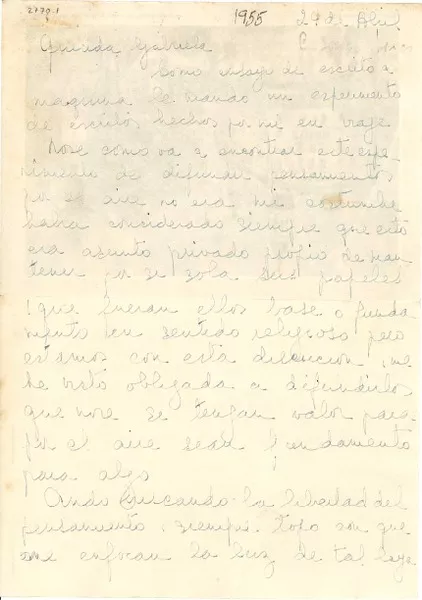 2770.1 1955 29 de Abril
Querida Gabriela
Como ensayo de escrito a
maquina le mando un experimento
de escritos hechos por mi en viaje
Nose como va a encontrar este espe
rimento de difundir pensamientos
por el aire no era mi costumbre
habia considerado siempre que esto
era asunto privado propio de man
tener por si sola sus papeles
que fueran ellos base o funda
mento en sentido religioso pero
estamos con esta discucion, me
he visto obligada a difundirlos
que nose si tengan valor para
por el aire sean fundamento
para algo
Ando buscando la libertad del
pensamiento, siempre topo con que
me enfocan la luz de tal